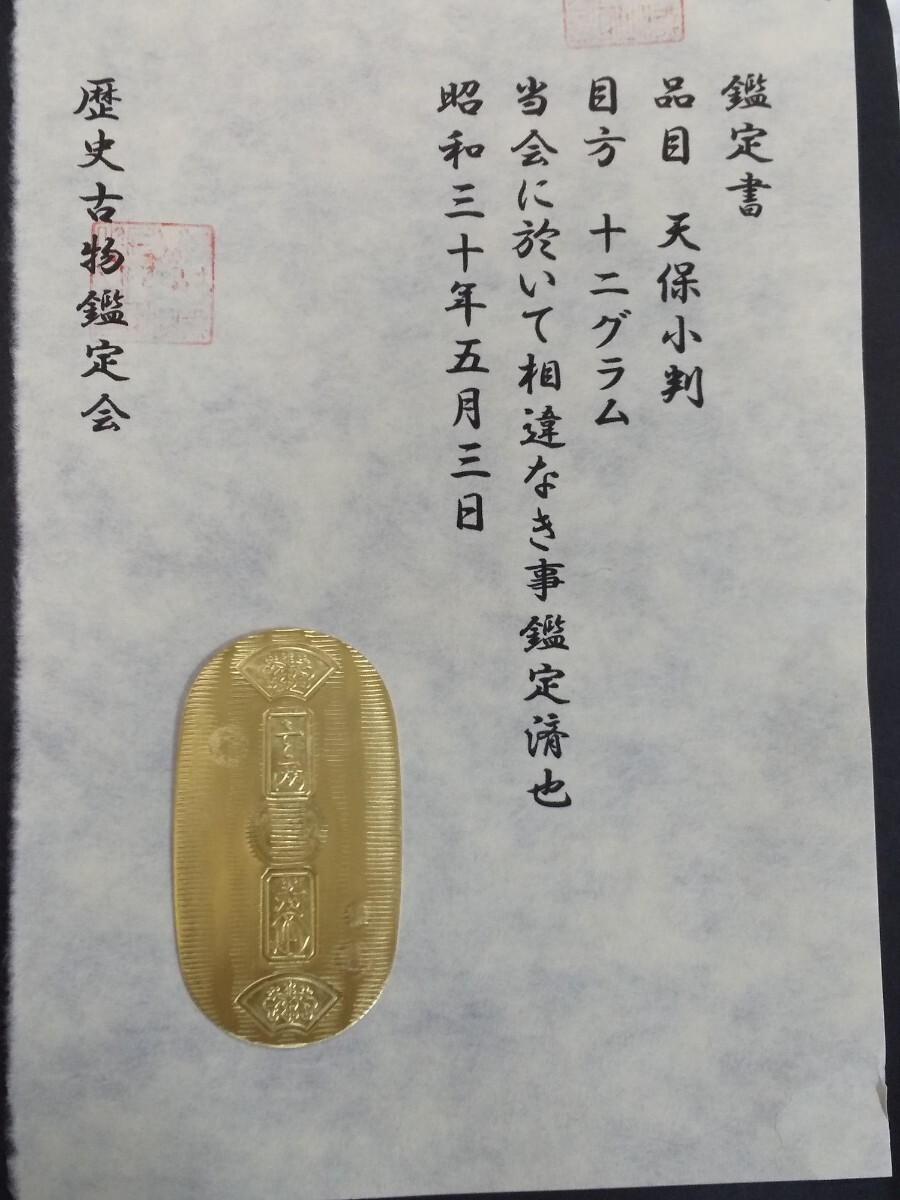 鑑定書
品目　天保小判
目方　十二グラム
当会に於いて相違なき事鑑定済也
昭和三十年五月三日
歴史古物鑑定会